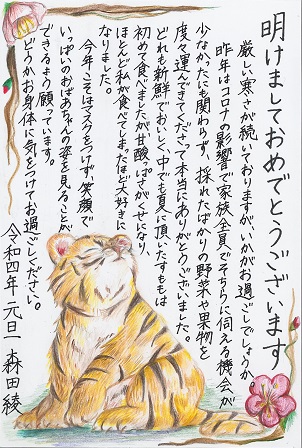 明けましておめでとうございます
厳しい寒さが続いておりますがいかがお過ごしでしょうか。
昨年はコロナの影響で家族全員でそちらに伺える機会が
少なかったにも関わらず、採れたばかりの野菜や果物を
度々運んできてくださって本当にありがとうございました。
どれも新鮮でおいしく、中でも夏に頂いたすももは
初めて食べましたが甘酸っぱさがくせになり、
ほとんど私が食べてしまったほど大好きに
なりました。
今年こそはマスクをつけず、笑顔で
いっぱいのおばあちゃんの姿を見ることが
できるよう願っています。
どうかお身体に気をつけてお過ごしください。
令和四年 元旦 森田 綾